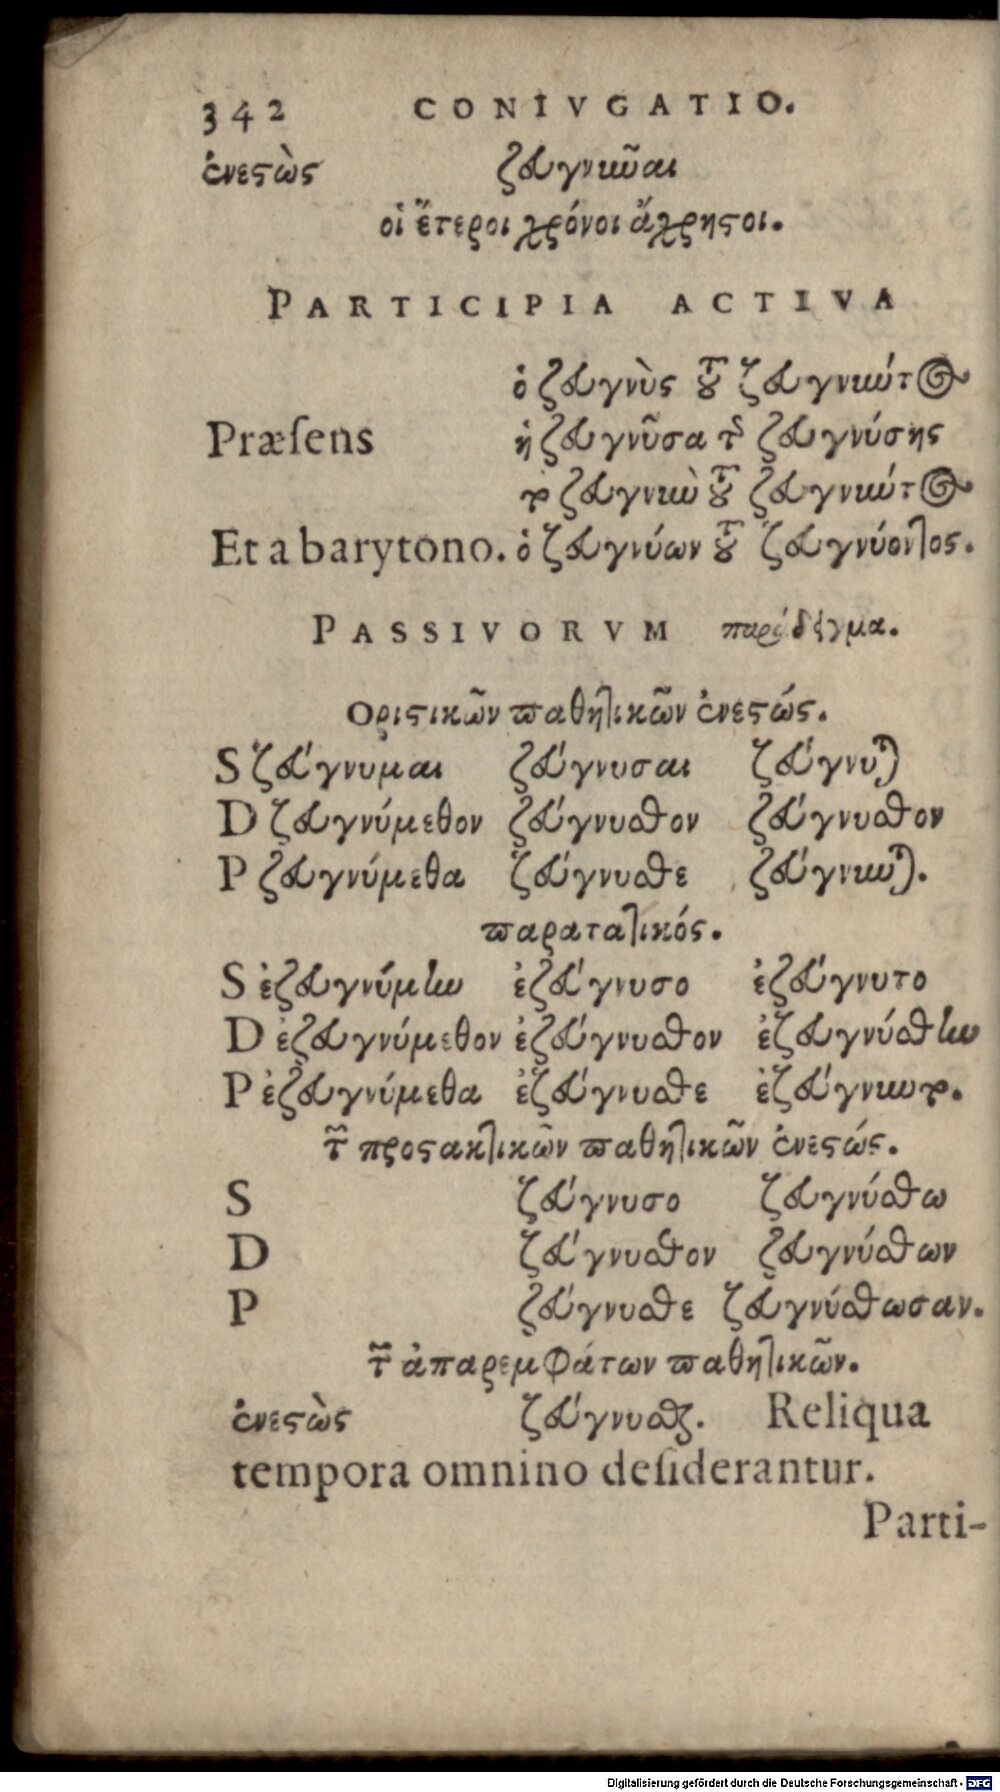 342 CONIVGATIO.
ἐνεστὼς ζευγνῦναι
οἱ ἕτεροι χρόνοι ἄχρηστοι.
PARTICIPIA ACTIVA
ὁ ζευγνὺς τοῦ ζευγνύντος
Præſens ἡ ζευγνῦσα τῆς ζευγνύσης
τὸ ζευγνὺν τοῦ ζευγνύντος
Et a barytono. ὁ ζευγνύων τοῦ ζευγνύοντος.
PASSIVORVM παράδειγμα.
Οριστικῶν παθητικῶν ἐνεστώς.
S ζεύγνυμαι ζεύγνυσαι ζεύγνυται
D ζευγνύμεθον ζεύγνυσθον ζεύγνυσθον
P ζευγνύμεθα ζεύγνυσθε ζεύγνυνται.
παρατατικός.
S ἐζευγνύμην ἐζεύγνυσο ἐζεύγνυτο
D ἐζευγνύμεθον ἐζεύγνυσθον ἐζευγνύσθην
P ἐζευγνύμεθα ἐζεύγνυσθε ἐζεύγνυντο.
τῶν προστακτικῶν παθητικῶν ἐνεστώς.
S ζεύγνυσο ζευγνύσθω
D ζεύγνυσθον ζευγνύσθων
P ζεύγνυσθε ζευγνύσθωσαν.
τῶν ἀπαρεμφάτων παθητικῶν.
ἐνεστὼς ζεύγνυσθαι. Reliqua
tempora omnino deſiderantur.
Parti-
Digitalisierung gefördert durch die Deutsche Forschungsgemeinschaft - DFG